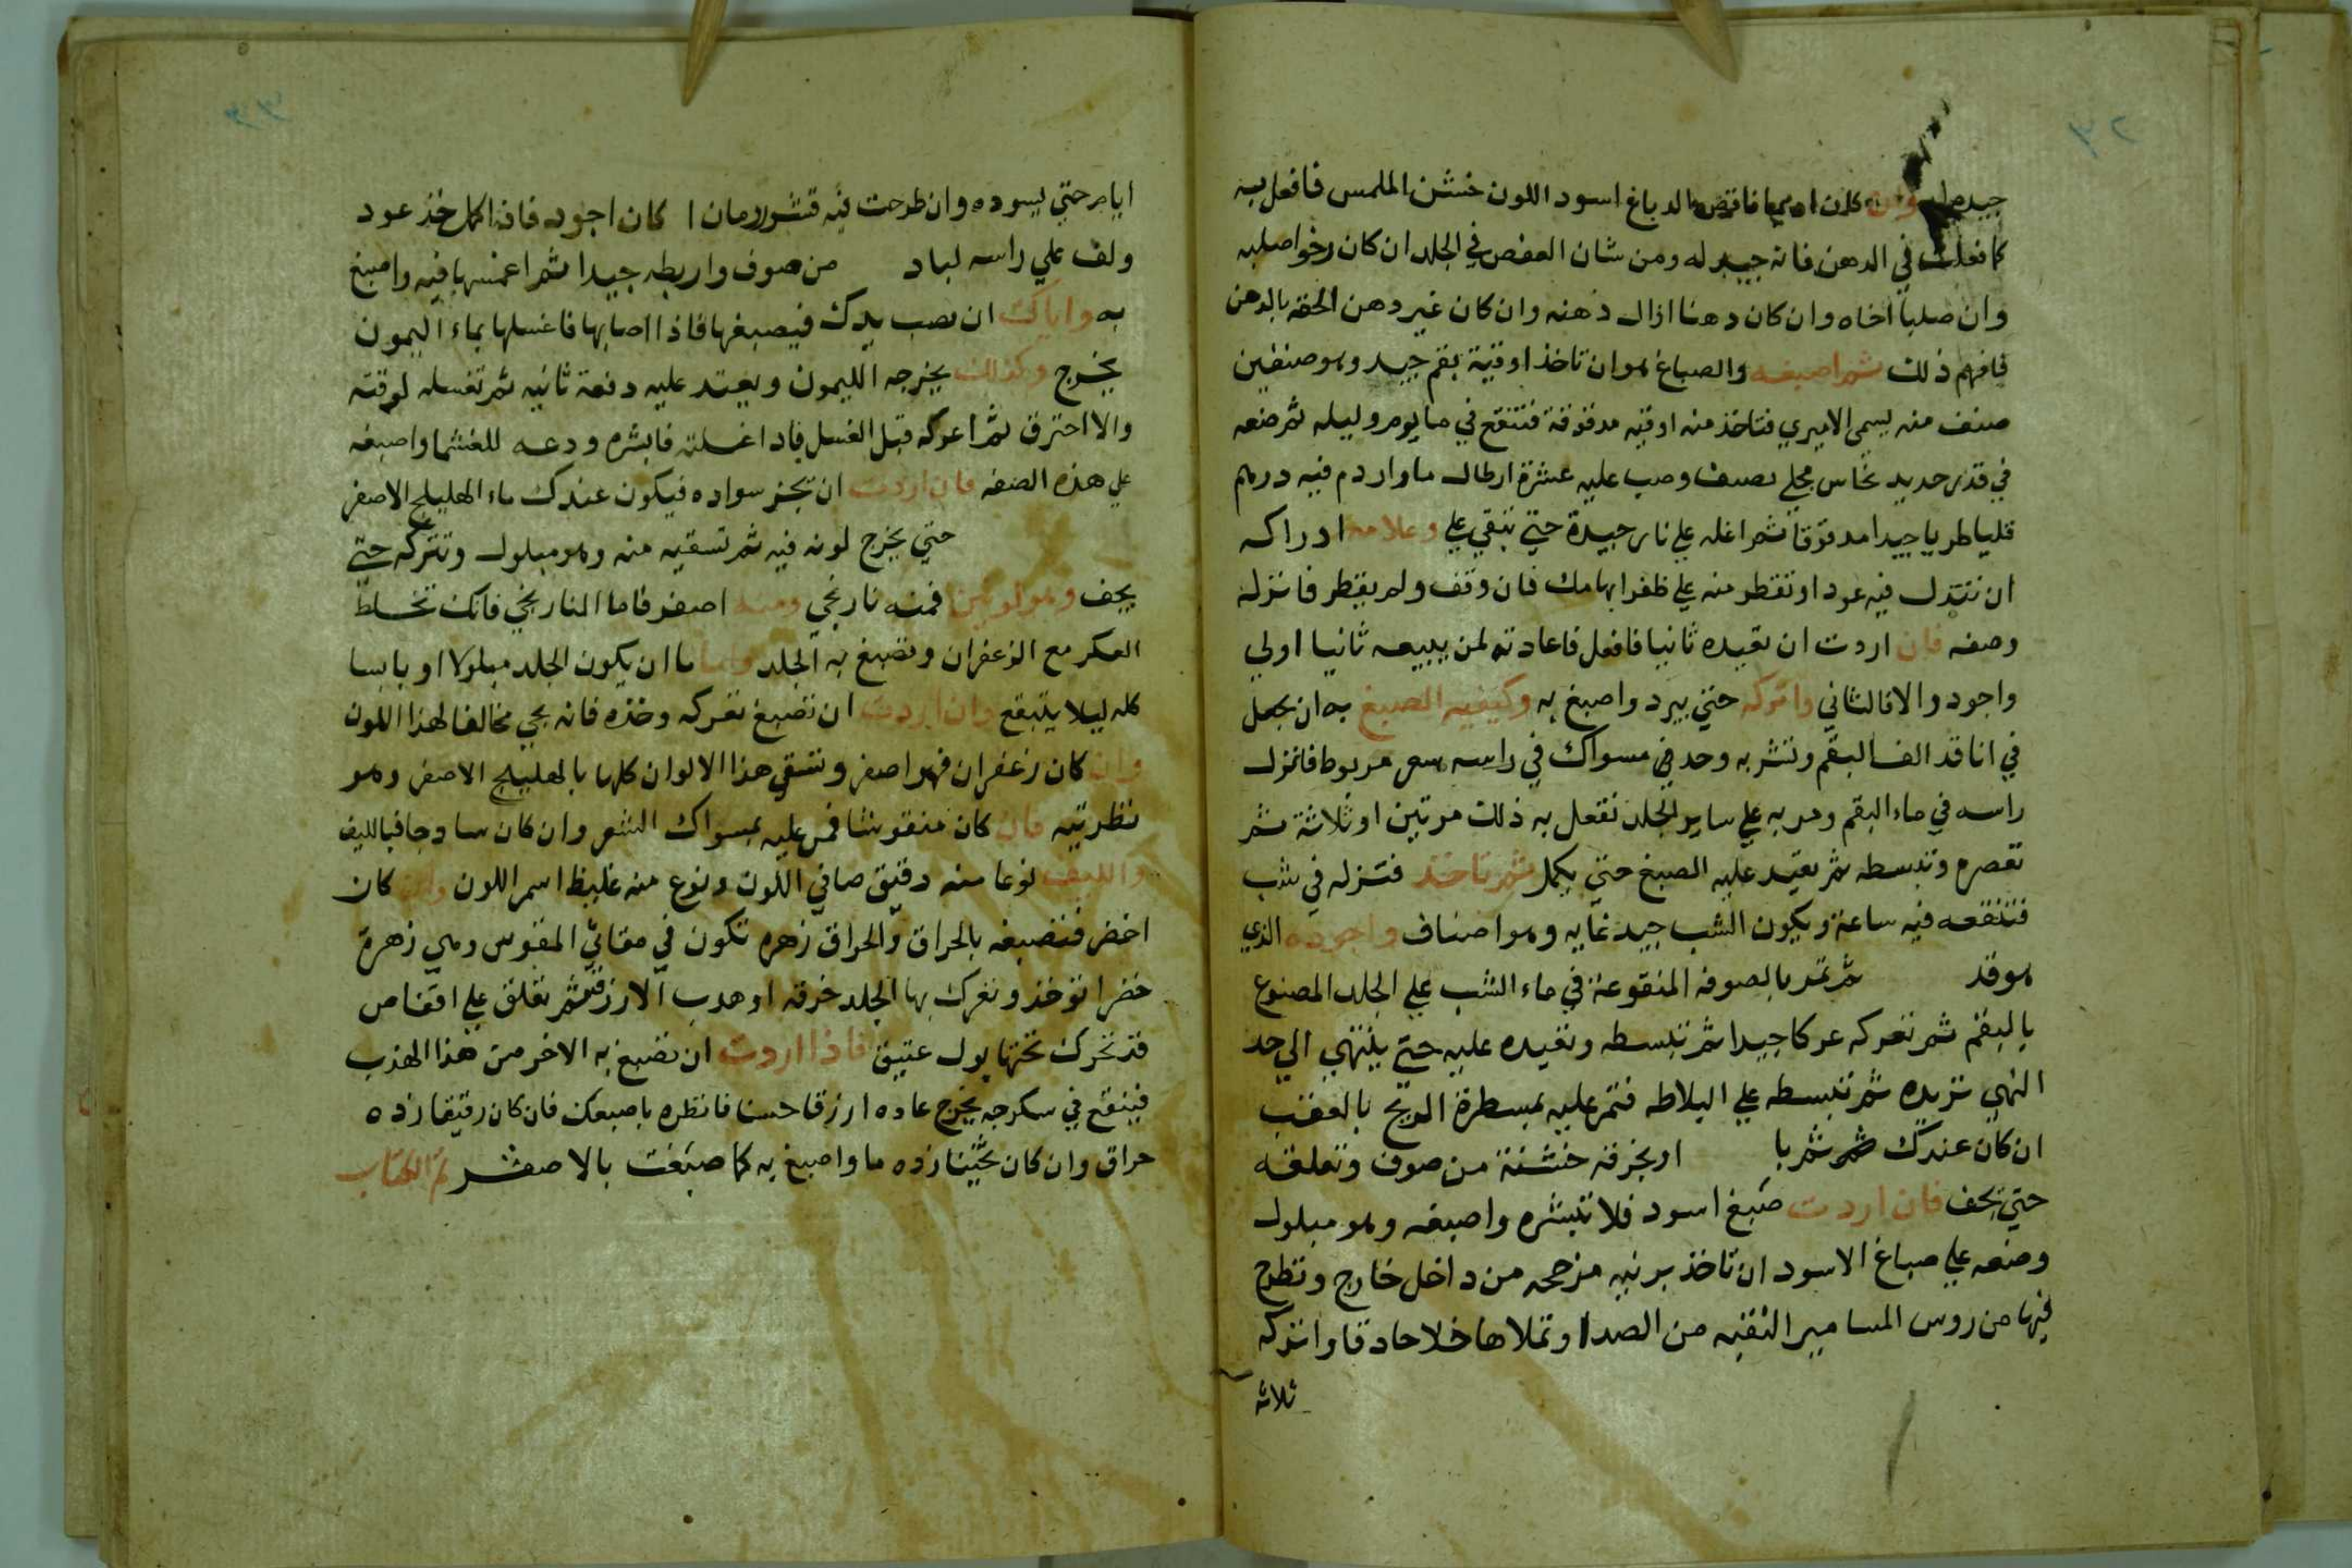 جيد وان كان اديما ناقص الدباغ اسود اللون خشن الملمس فافعل به
كما فعلت في الدهن فانه جيد له ومن شان العفص في الجلد ان كان رخوا صلبه
وان صلبا اخاه وان كان دهنا ازال دهنه وان كان غير دهن الحقه بالدهن
فافهم ذلك ثم اصبغه والصباغ هو ان تاخذ اوقية بقم جيد وهو صنفين
صنف منه يسمى الاميري فتاخذ منه اوقيه مدقوقة فتنقع في ما يوم وليله ثم ضعه
في قدر حديد نحاس مجلي نصيف وصب عليه عشرة ارطال ما وارم فيه درهم
قليا طريا جيدا مدقوقا ثم اغله علي نار جيدة حتي تبقي علي وعلامه ادراكه
ان تنزل فيه عود او تقطر منه علي ظفر ابهامك فان وقف ولم يقطر فانزله
وصفه فان اردت ان تعيده ثانيا فافعل فاعادته لمن يبيعه ثانيا اولي
واجود والا فالثاني واتركه حتي يبرد واصبغ به وكيفيه الصبغ به ان يجعل
في انا قد الف البقم وتشربه وخد في مسواك في راسه شعر مربوط فانزل
راسه في ماء البقم ومر به علي ساير الجلد تفعل به ذلك مرتين او ثلاثة ثم
تعصره وتبسطه ثم تعيد عليه الصبغ حتي يكمل ثم تاخذ فتنزله في شب
فتنقعه فيه ساعة ويكون الشب جيد غايه وهو اصناف واجوده الذي
هو قد ثم تمر بالصوفه المنقوعة في ماء الشب علي الجلد المصنوع
بالبقم ثم تعركه عركا جيدا ثم تبسطه وتعيده عليه حتي ينتهي الي حد
الذي تريده ثم تبسطه علي البلاطه فتمر عليه بمسطرة الريح بالعقب
ان كان عندك ثم با او بخرقه خشنة من صوف وتعلقه
حتي يجف فان اردت صبغ اسود فلا تبشره واصبغه وهو مبلول
وصفه علي صباغ الاسود ان تاخذ برنيه مزججه من داخل خارج وتطرح
فيها من روس المسامير النقيه من الصدا وتملاها خلا حادقا واتركه
ثلاثه
ايام حتي يسوده وان طرحت فيه قشور رمان كان اجود فاذا اكمل خذ عود
ولف علي راسه لباد من صوف واربطه جيدا ثم اغمسها فيه واصبغ
به واياك ان يصب يدك فيصبغها فاذا اصابها فاغسلها بماء اليمون
يخرج وكذلك يخرجه الليمون ويعتد عليه دفعة ثانيه ثم تغسله لوقته
والا احترق ثم اعركه قبل الغسل فاذا غسلته فابشره ودعه للغشا واصبغه
علي هذه الصفه فان اردت ان تجز سواده فيكون عندك ماء الهليلج الاصفر
حتي يخرج لونه فيه ثم تسقيه منه وهو مبلول وتتركه حتي
يجف وهو لونين فمنه نارنجي ومنه اصفر فاما النارنجي فانك تخلط
العكر مع الزعفران وتصبغ به الجلد واما ما ان يكون الجلد مبلولا او يابسا
كله ليلا يتبقع وان اردت ان تصبغ تعركه وخذه فانه يجي مخالفا لهذا اللون
وان كان زعفران فهو اصفر وتسقي هذا الالوان كلها بالهليلج الاصفر وهو
نظرتيه فان كان منقوشا فمر عليه بمسواك الشعر وان كان سادجا فبالليف
والليف نوعا منه دقيق صافي اللون ونوع منه غليظ اسمر اللون وان كان
اخضر فتصبغه بالحراق والحراق زهره تكون في مقاتي الفقوس وهي زهرة
خضرا توخذ وتعرك بها الجلد خرقه او هدب الازرق ثم تعلق علي اقفاص
قد تحرك تحتها بول عتيق فاذا اردت ان تصبغ به الاخر من هذا الهذب
فينقع في سكرجه يخرج عاده ازرقا حسنا فانظره باصبعك فان كان رقيقا زده
حراق وان كان تخينا زده ما واصبغ به كما صبغت بالاصفر تم الكتاب